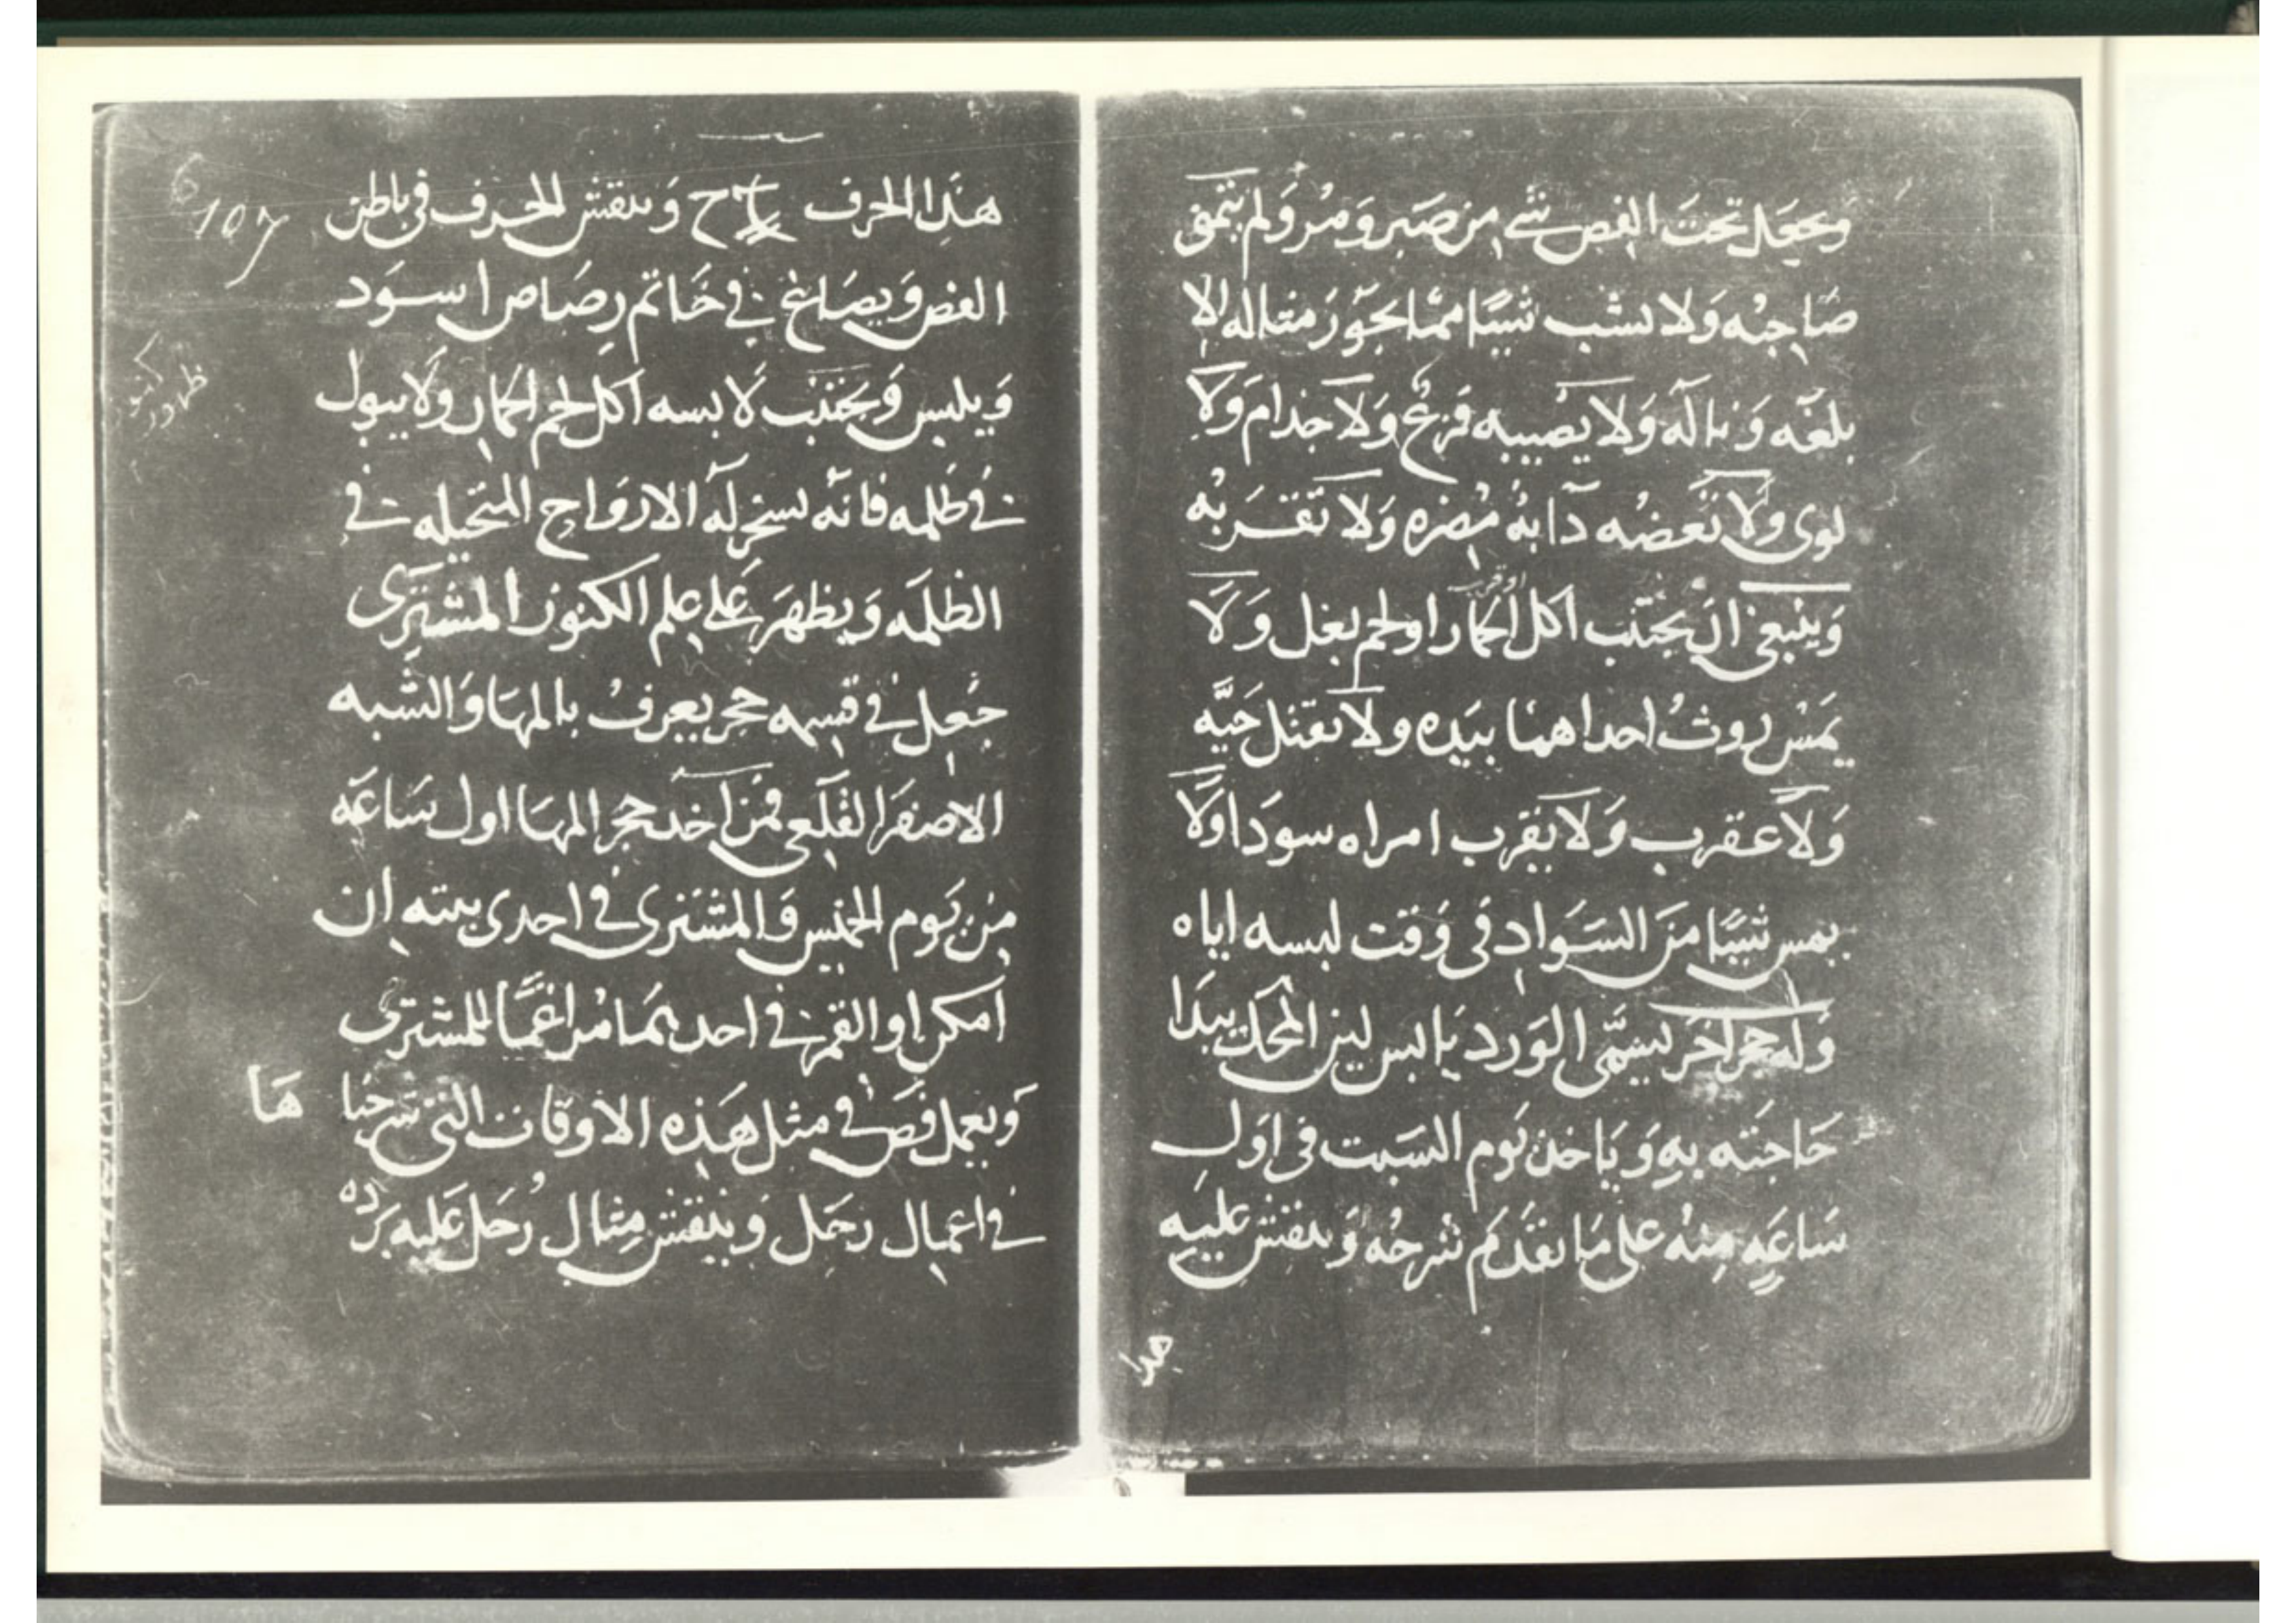 وجعل تحت الفص شي من صبر ومر ولم يتمنى
صاحبه ولا شيا مما يجوز مثاله الا
بلغه وناله ولا يصيبه فزع ولا جذام ولا
لوى ولا تعضه دابه مضره ولا تقربه
وينبغى ان يجتنب اكل الحمار او لحم بغل ولا
يمس روث احداهما بيده ولا يقتل حيه
ولا عقرب ولا يقرب امراه سودا ولا
يمس شيا من السواد فى وقت لبسه اياه
وله حجر اخر يسمى الورد يابس لين المحك يبدا
حاجته به وياخذ يوم السبت فى اول
ساعه منه على ما تقدم شرحه وينقش عليه
هذا
هذا الحرف ح وينقش الحرف فى باطن
الفص ويصاغ فى خاتم رصاص اسود
ويلبس ويجتنب لابسه اكل لحم الحمار ولا يبول
فى ظلمه فانه يسخر له الارواح المتخيله فى
الظلمه ويظهر على علم الكنوز المشترى
جعل فى قسمه حجر يعرف بالمها والشبه
الاصفر القلعى فمن اخذ حجر المها اول ساعه
من يوم الخميس والمشترى فى احدى بيته ان
امكن او القمر فى احدهما مراغما للمشترى
ويعمل فص فى مثل هذه الاوقات التى شرحنا ها
فى اعمال زحل وينقش مثال رحل عليه برده
107
6
ظهور كنوز